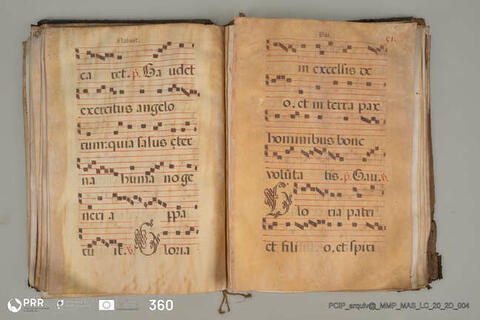 Nativit.
ca ret. p. Gau det
exercitus angelo
rum: quia salus eter
na huma no ge
neri a ppa
ru it. v. Gloria
in excelsis de
o. et in terra pax
hominibus bone
volunta tis. p. Gau. v.
Glo ria patri
et fili o. et spiri
PRR
360
PCIP_arquiv@_MMP_MAS_LC_20_2D_004